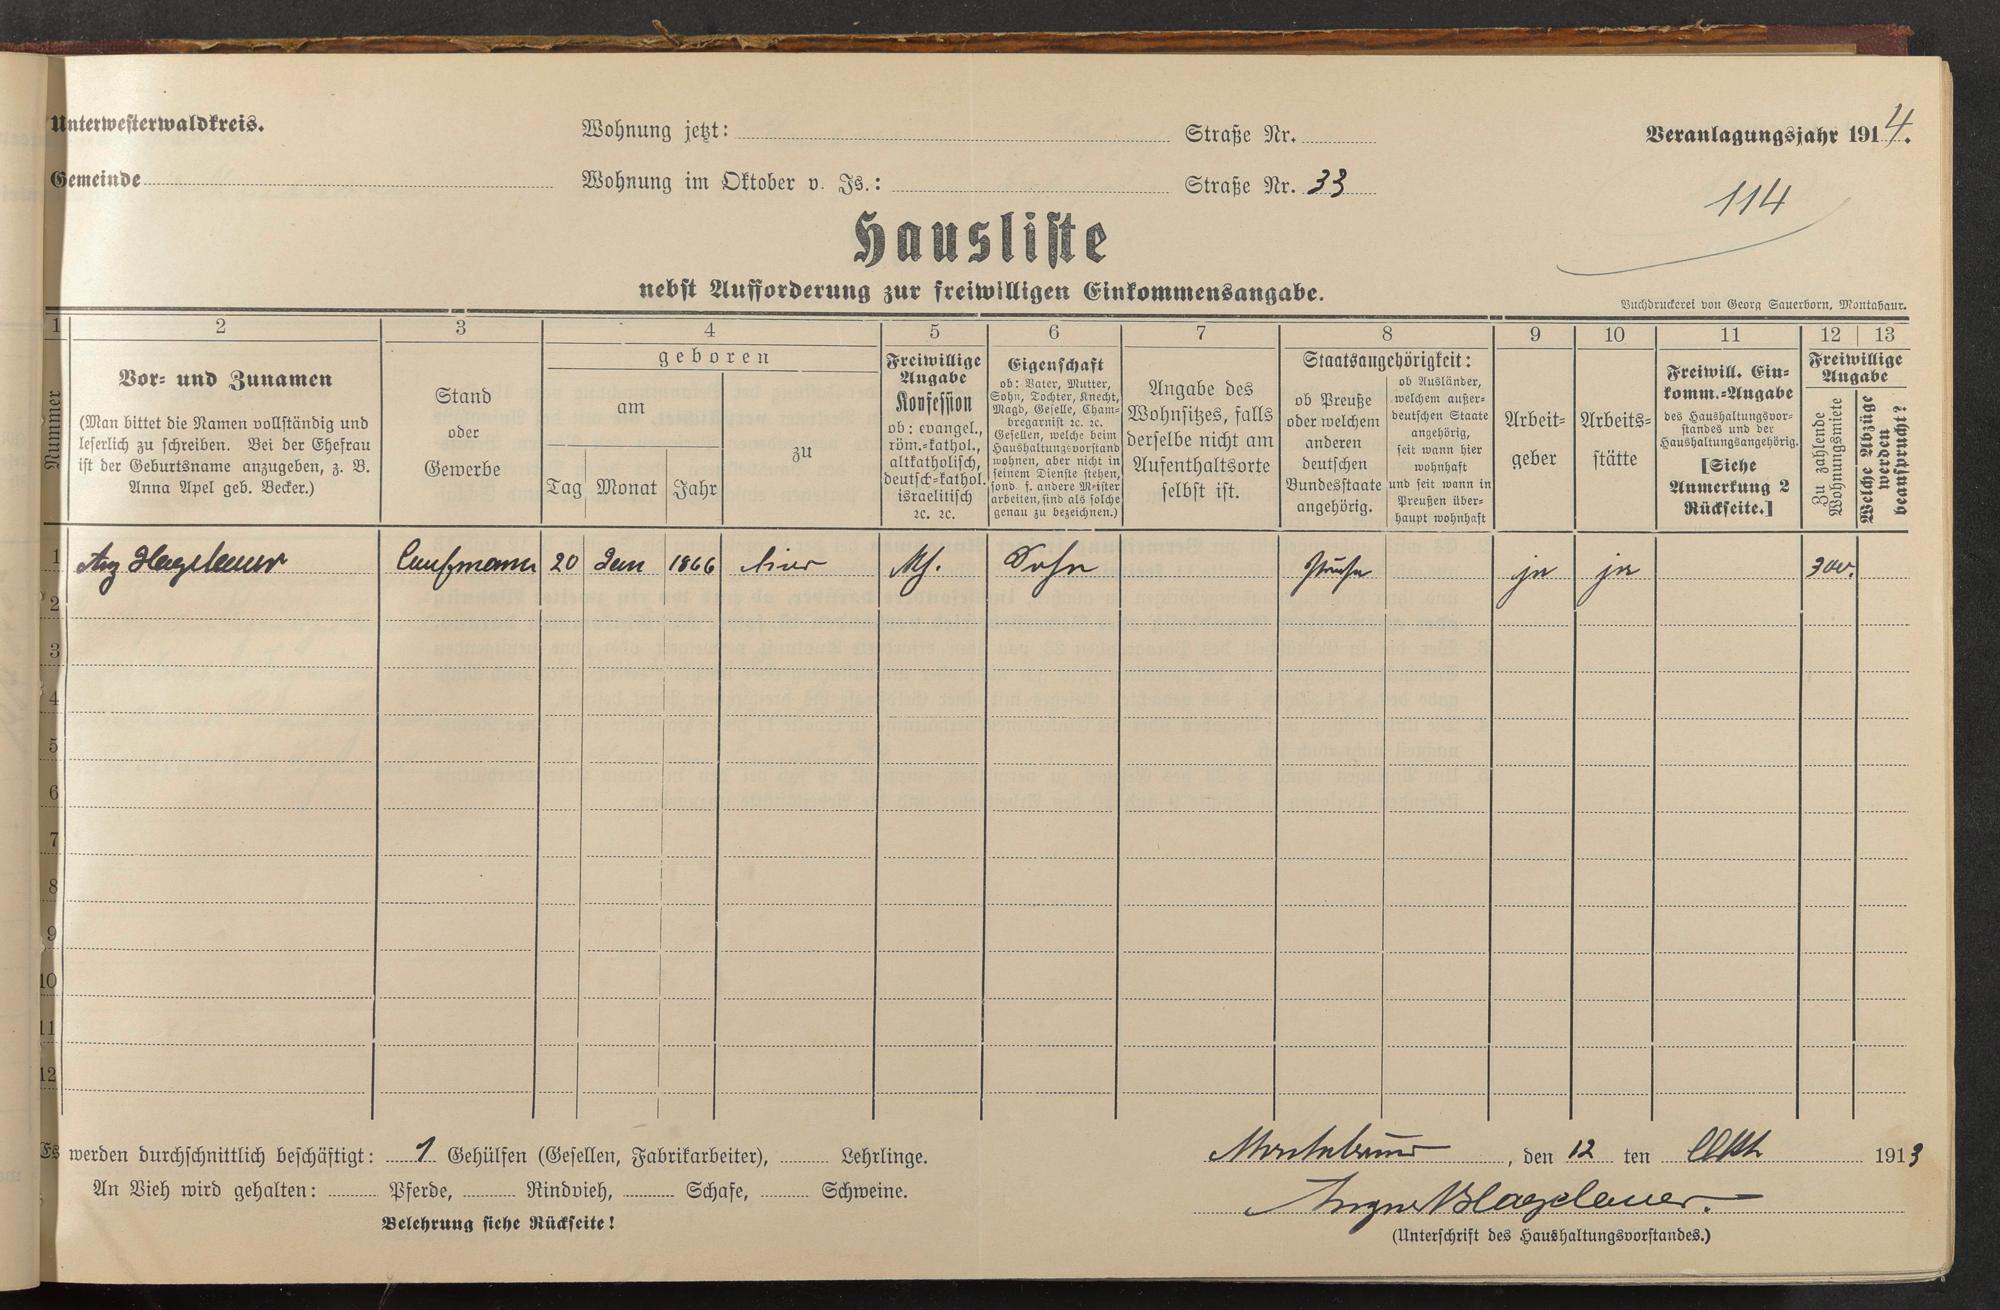 Unterwesterwaldkreis.
Wohnung jetzt: Straße Nr.
Veranlagungsjahr 1914.
Gemeinde
Wohnung im Oktober v. Js.: Straße Nr. 33
114
Hausliste
nebst Aufforderung zur freiwilligen Einkommensangabe.
Buchdruckerei von Georg Sauerborn, Montabaur.
1 2 3 4 5 6 7 8 9 10 11 12 13
Nummer
Vor- und Zunamen
(Man bittet die Namen vollständig und
leserlich zu schreiben. Bei der Ehefrau
ist der Geburtsname anzugeben, z. B.
Anna Apel geb. Becker.)
Stand
oder
Gewerbe
geboren
am
Tag Monat Jahr
zu
Freiwillige
Angabe
Konfession
ob: evangel.,
röm.-kathol.,
altkatholisch,
deutsch-kathol.
israelitisch
ꝛc. ꝛc.
Eigenschaft
ob: Vater, Mutter,
Sohn, Tochter, Knecht,
Magd, Geselle, Cham-
bregarnist ꝛc. ꝛc.
Gesellen, welche beim
Haushaltungsvorstand
wohnen, aber nicht in
seinem Dienste stehen,
sond. f. andere Meister
arbeiten, sind als solche
genau zu bezeichnen.)
Angabe des
Wohnsitzes, falls
derselbe nicht am
Aufenthaltsorte
selbst ist.
Staatsangehörigkeit:
ob Preuße
oder welchem
anderen
deutschen
Bundesstaate
angehörig.
ob Ausländer,
welchem außer-
deutschen Staate
angehörig,
seit wann hier
wohnhaft
und seit wann in
Preußen über-
haupt wohnhaft
Arbeit-
geber
Arbeits-
stätte
Freiwill. Ein-
komm.-Angabe
des Haushaltungsvor-
standes und der
Haushaltungsangehörig.
[Siehe
Anmerkung 2
Rückseite.]
Freiwillige
Angabe
Zu zahlende
Wohnungsmiete
Welche Abzüge
werden
beansprucht?
1 Kaufmann 20 Jan 1866 hier Sohn Preuße ja ja 300.
2
3
4
5
6
7
8
9
10
11
12
Es werden durchschnittlich beschäftigt: 1 Gehülfen (Gesellen, Fabrikarbeiter), Lehrlinge.
Montabaur, den 12 ten Okt. 1913
An Vieh wird gehalten: Pferde, Rindvieh, Schafe, Schweine.
Belehrung siehe Rückseite!
(Unterschrift des Haushaltungsvorstandes.)